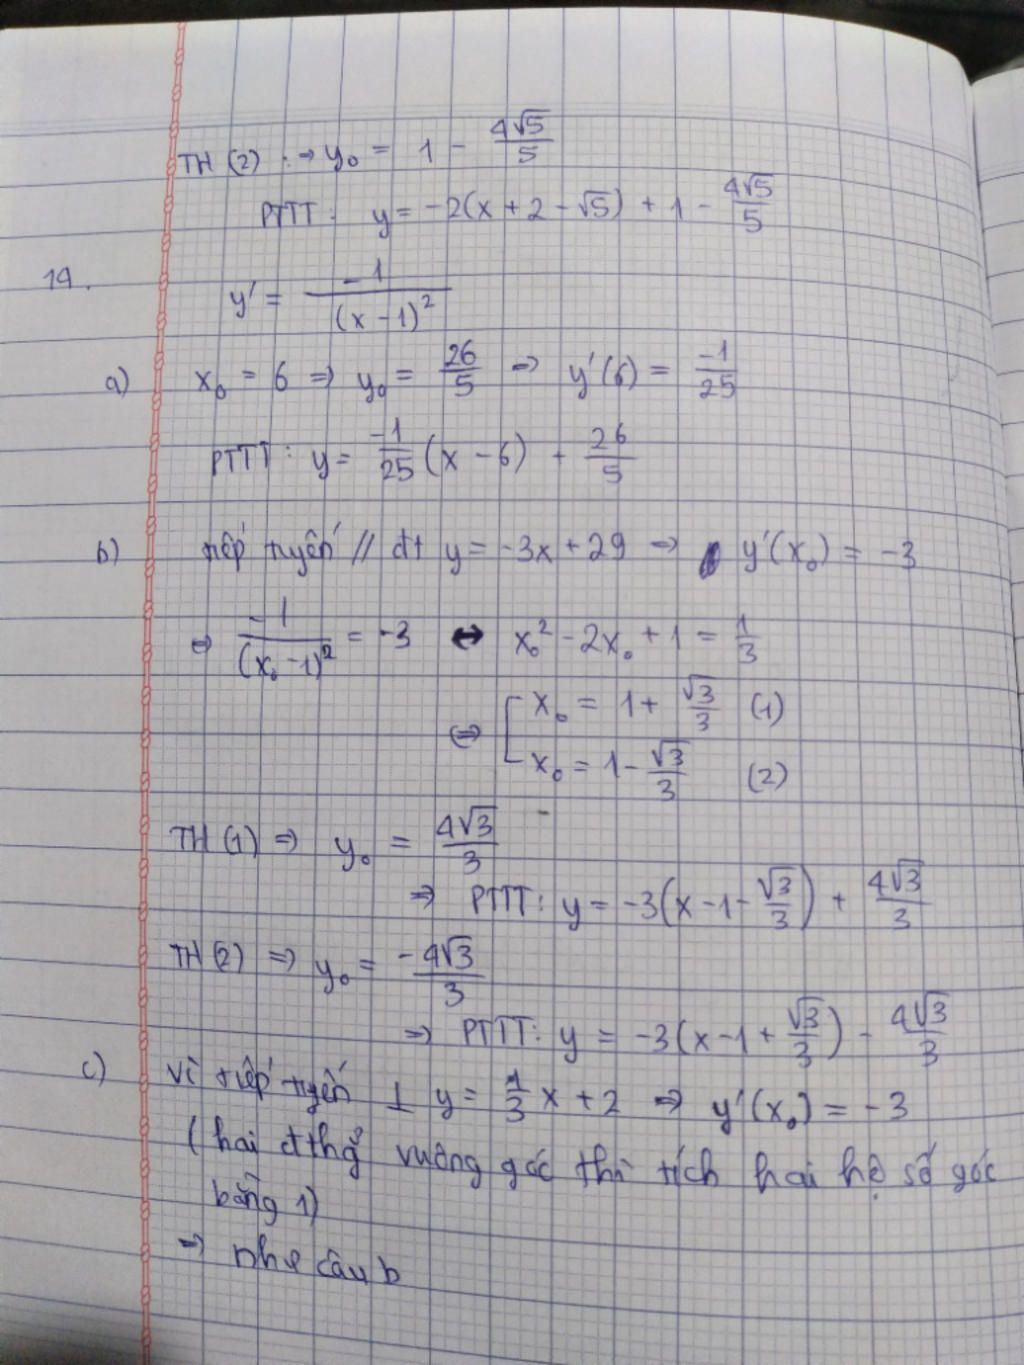 TH (2) : → y₀ = 1 - 4√5/5
PTTT: y = -2(x + 2 - √5) + 1 - 4√5/5
14.
y' = -1/(x - 1)²
a) x₀ = 6 ⇒ y₀ = 26/5 ⇒ y'(6) = -1/25
PTTT: y = -1/25 (x - 6) + 26/5
b) tiếp tuyến // đt y = -3x + 29 ⇒ y'(x₀) = -3
⇒ -1/(x₀ - 1)² = -3 ↔ x₀² - 2x₀ + 1 = 1/3
⇔ [ x₀ = 1 + √3/3 (1)
x₀ = 1 - √3/3 (2)
TH (1) ⇒ y₀ = 4√3/3
⇒ PTTT: y = -3(x - 1 - √3/3) + 4√3/3
TH (2) ⇒ y₀ = -4√3/3
⇒ PTTT: y = -3(x - 1 + √3/3) - 4√3/3
c) Vì tiếp tuyến ⊥ y = 1/3 x + 2 ⇒ y'(x₀) = -3
(hai đthg vuông góc thì tích hai hệ số góc
bằng 1)
⇒ như câu b